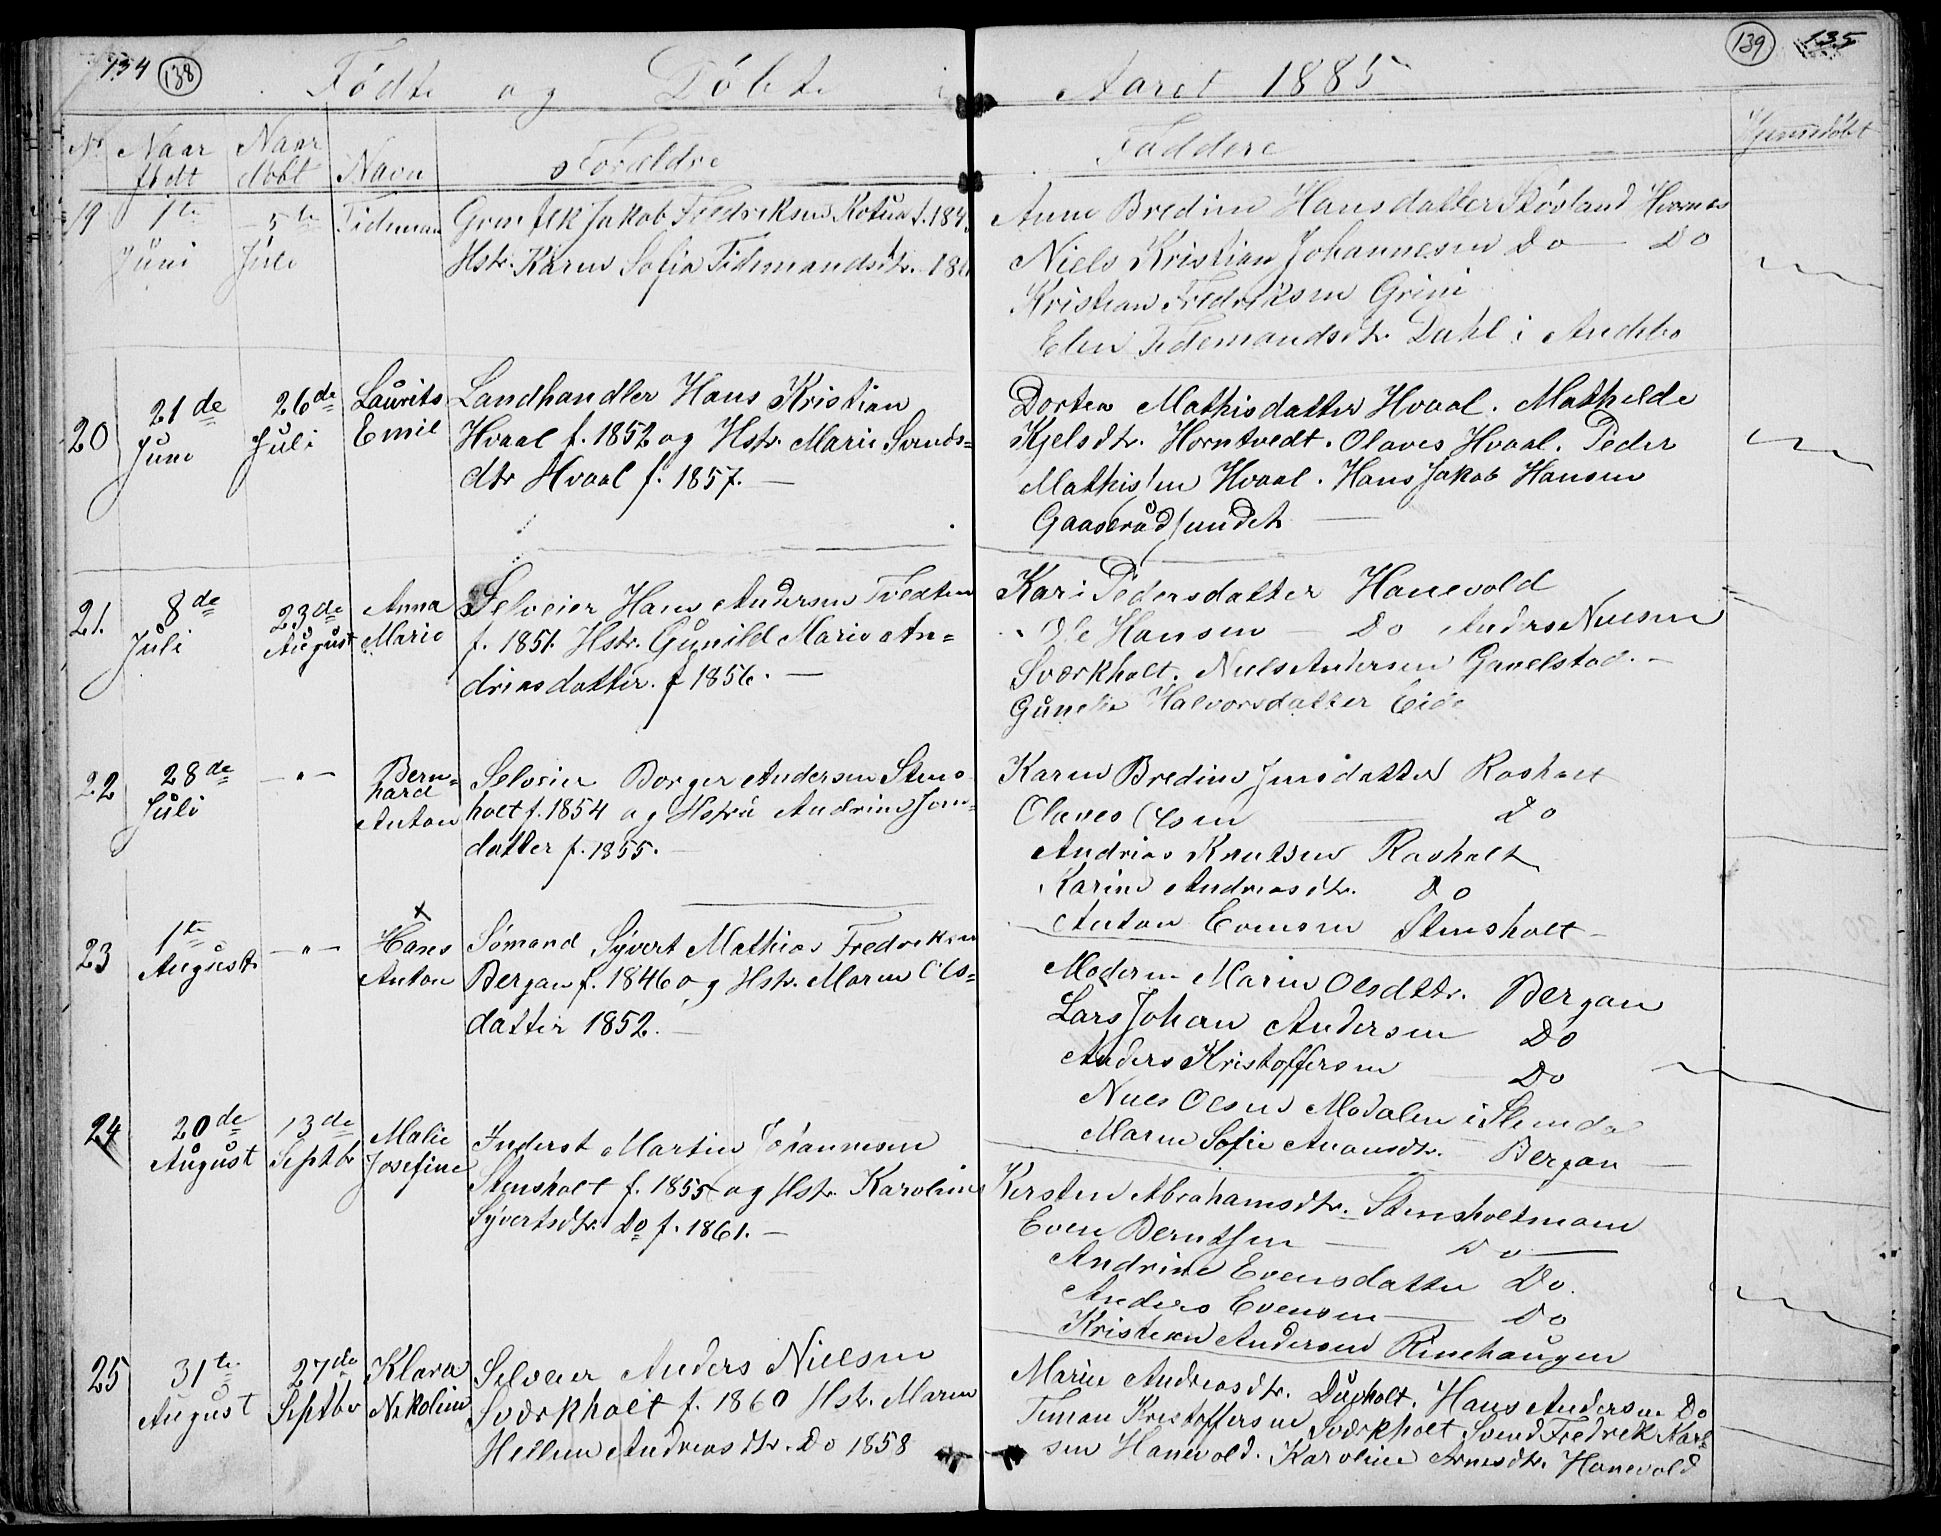 134 138
Fødte og Døbte i
No Naar født Naar døbt Navn Forældre
19 1te Juni 5te Juli Tideman
Jakob Fredriksen f. 184
Hstr. Karen Sofia Tidemandsdtr. 18
20 21de Juni 26de Juli Laurits Emil
Landhandler Hans Kristian
Hvaal f. 1852 og Hstr. Marie Svends=
dtr Hvaal f. 1857. —
21. 8de Juli 23de August Anna Marie
Selveier Hans Andersen Tvedten
f. 1851. Hstr. Gunild Marie An=
dreasdatter. f 1856. —
22 28de Juli — " — Bern= hard Anton
Selveier Borger Andersen Stens
holt f. 1854 og Hstru Andrine Jens=
datter f. 1855.
23 1te August — " — Hans Anton
Sømand Syvert Mathias Fredriksen
Bergan f. 1846 og Hstr. Maren Ols=
datter 1852. —
24 20de August 13de Septbr Malie Josefine
Inderst Martin Johannesen
Stensholt f. 1855 og Hstr. Karoline
Syvertsdtr. Do f. 1861. —
25 31te August 27de Septbr Klara Nikoline
Selveier Anders Nielsen
Sværkholt f. 1860 Hstr. Maren
Helene Andreasdtr. Do 1858
139 135
Aaret 1885
Faddere
Hjemmedøbt
Anne Bredine Hansdatter Støvland
Niels Kristian Johannesen Do — Do
Kristian Fredriksen Grini
Elen Tidemandsdtr. Dahl i Andebo
Dortea Mathisdatter Hvaal. Mathilde
Kjelsdtr. Horntvedt. Olaves Hvaal. Peder
Mathissen Hvaal. Hans Jakob Hansen
Gaaserødsundet —
Kari Pedersdatter Hanevold
Ole Hansen — Do Anders Nielsen
Sværkholt. Niels Andersen Gravelstad. —
Halvorsdatter Eide
Karen Bredine Jensdatter Rosholt
Olaves Olsen — Do
Andreas Knutsen Rosholt
Karine Andreasdtr. Do
Anton Evensen Stensholt —
Moderen Maren Olsdttr. Bergan
Lars Johan Andersen Do
Anders Kristoffersen — Do
Niels Olsen Modalen i Slemdal
Maren Sofie Bergan —
Kirsten Abrahamsdtr. Stensholtmoen
Even Berntsen — Do —
Andrine Evensdatter Do.
Anders Evensen — Do
Kristian Andersen Rinehaugen
Marie Andreasdtr. Hans Andersen Do
Timan Kristoffersen Sværkholt Svend Fredrik Karl=
sen Hanevold. Karoline Arnesdtr. Hanevold